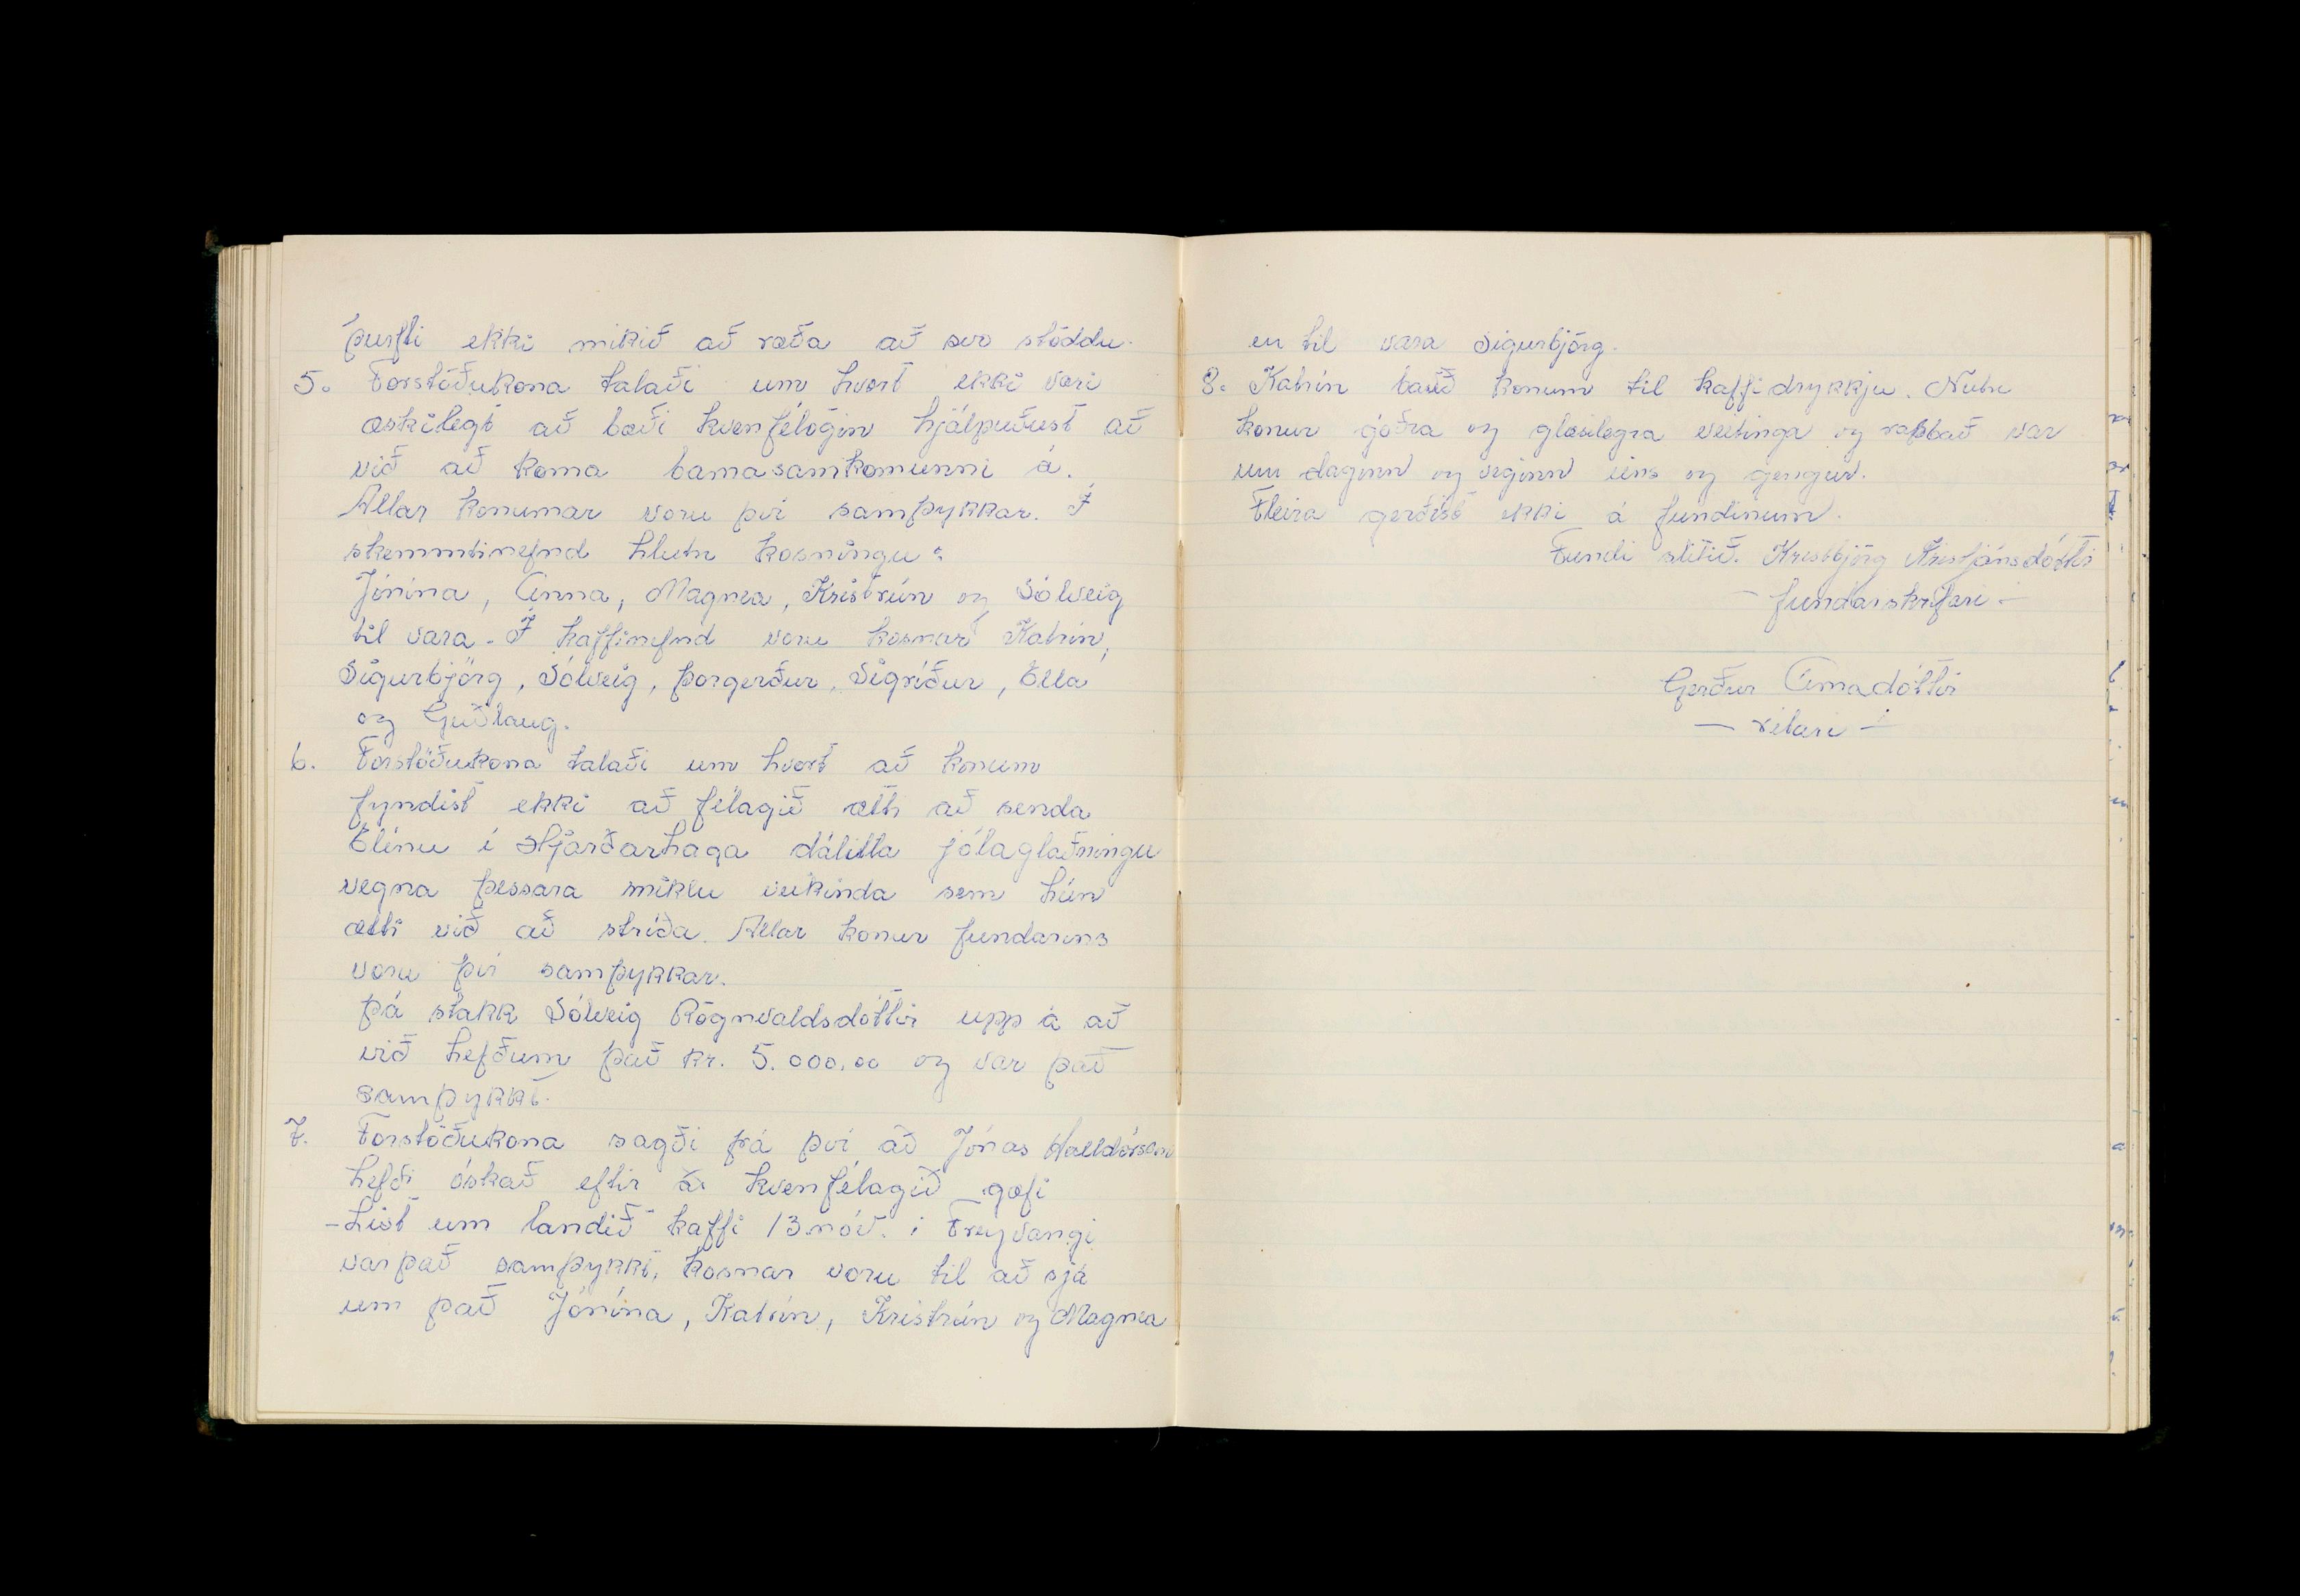 þurfti ekki mikið að ræða að svo stöddu.
5. Forstöðukona talaði um hvort ekki væri
æskilegt að bæði kvenfélögin hjálpuðust að
við að koma barnasamkomunni á.
Allar konurnar voru því samþykkar. Í
skemmtinefnd hlutu kosningu:
Jónína, Anna, Magnea, Kristrún og Sólveig
til vara. Í kaffinefnd voru kosnar Katrín,
Sigurbjörg, Sólveig, Þorgerður, Sigríður, Ella
og Guðlaug.
6. Forstöðukona talaði um hvort að konum
fyndist ekki að félagið ætti að senda
Elínu í Hjarðarhaga dálitla jólaglaðningu
vegna þessara miklu veikinda sem hún
ætti við að stríða. Allar konur fundarins
voru því samþykkar.
Þá stakk Sólveig Rögnvaldsdóttir upp á að
við hefðum það kr. 5.000.00 og var það
samþykkt.
7. Forstöðukona sagði frá því að Jónas Halldórsson
hefði óskað eftir að kvenfélagið gæfi
-List um landið" kaffi 13 nóv. í Freyvangi
var það samþykkt, kosnar voru til að sjá
um það Jónína, Katrín, Kristrún og Magnea
en til vara Sigurbjörg.
8. Katrín bauð konum til kaffidrykkju. Nutu
konur góðra og glæsilegra veitinga og rabbað var
um daginn og veginn eins og gengur.
Fleira gerðist ekki á fundinum.
Fundi slitið. Kristbjörg Kristjánsdóttir
- fundarskrifari -
Gerður Árnadóttir
- ritari -